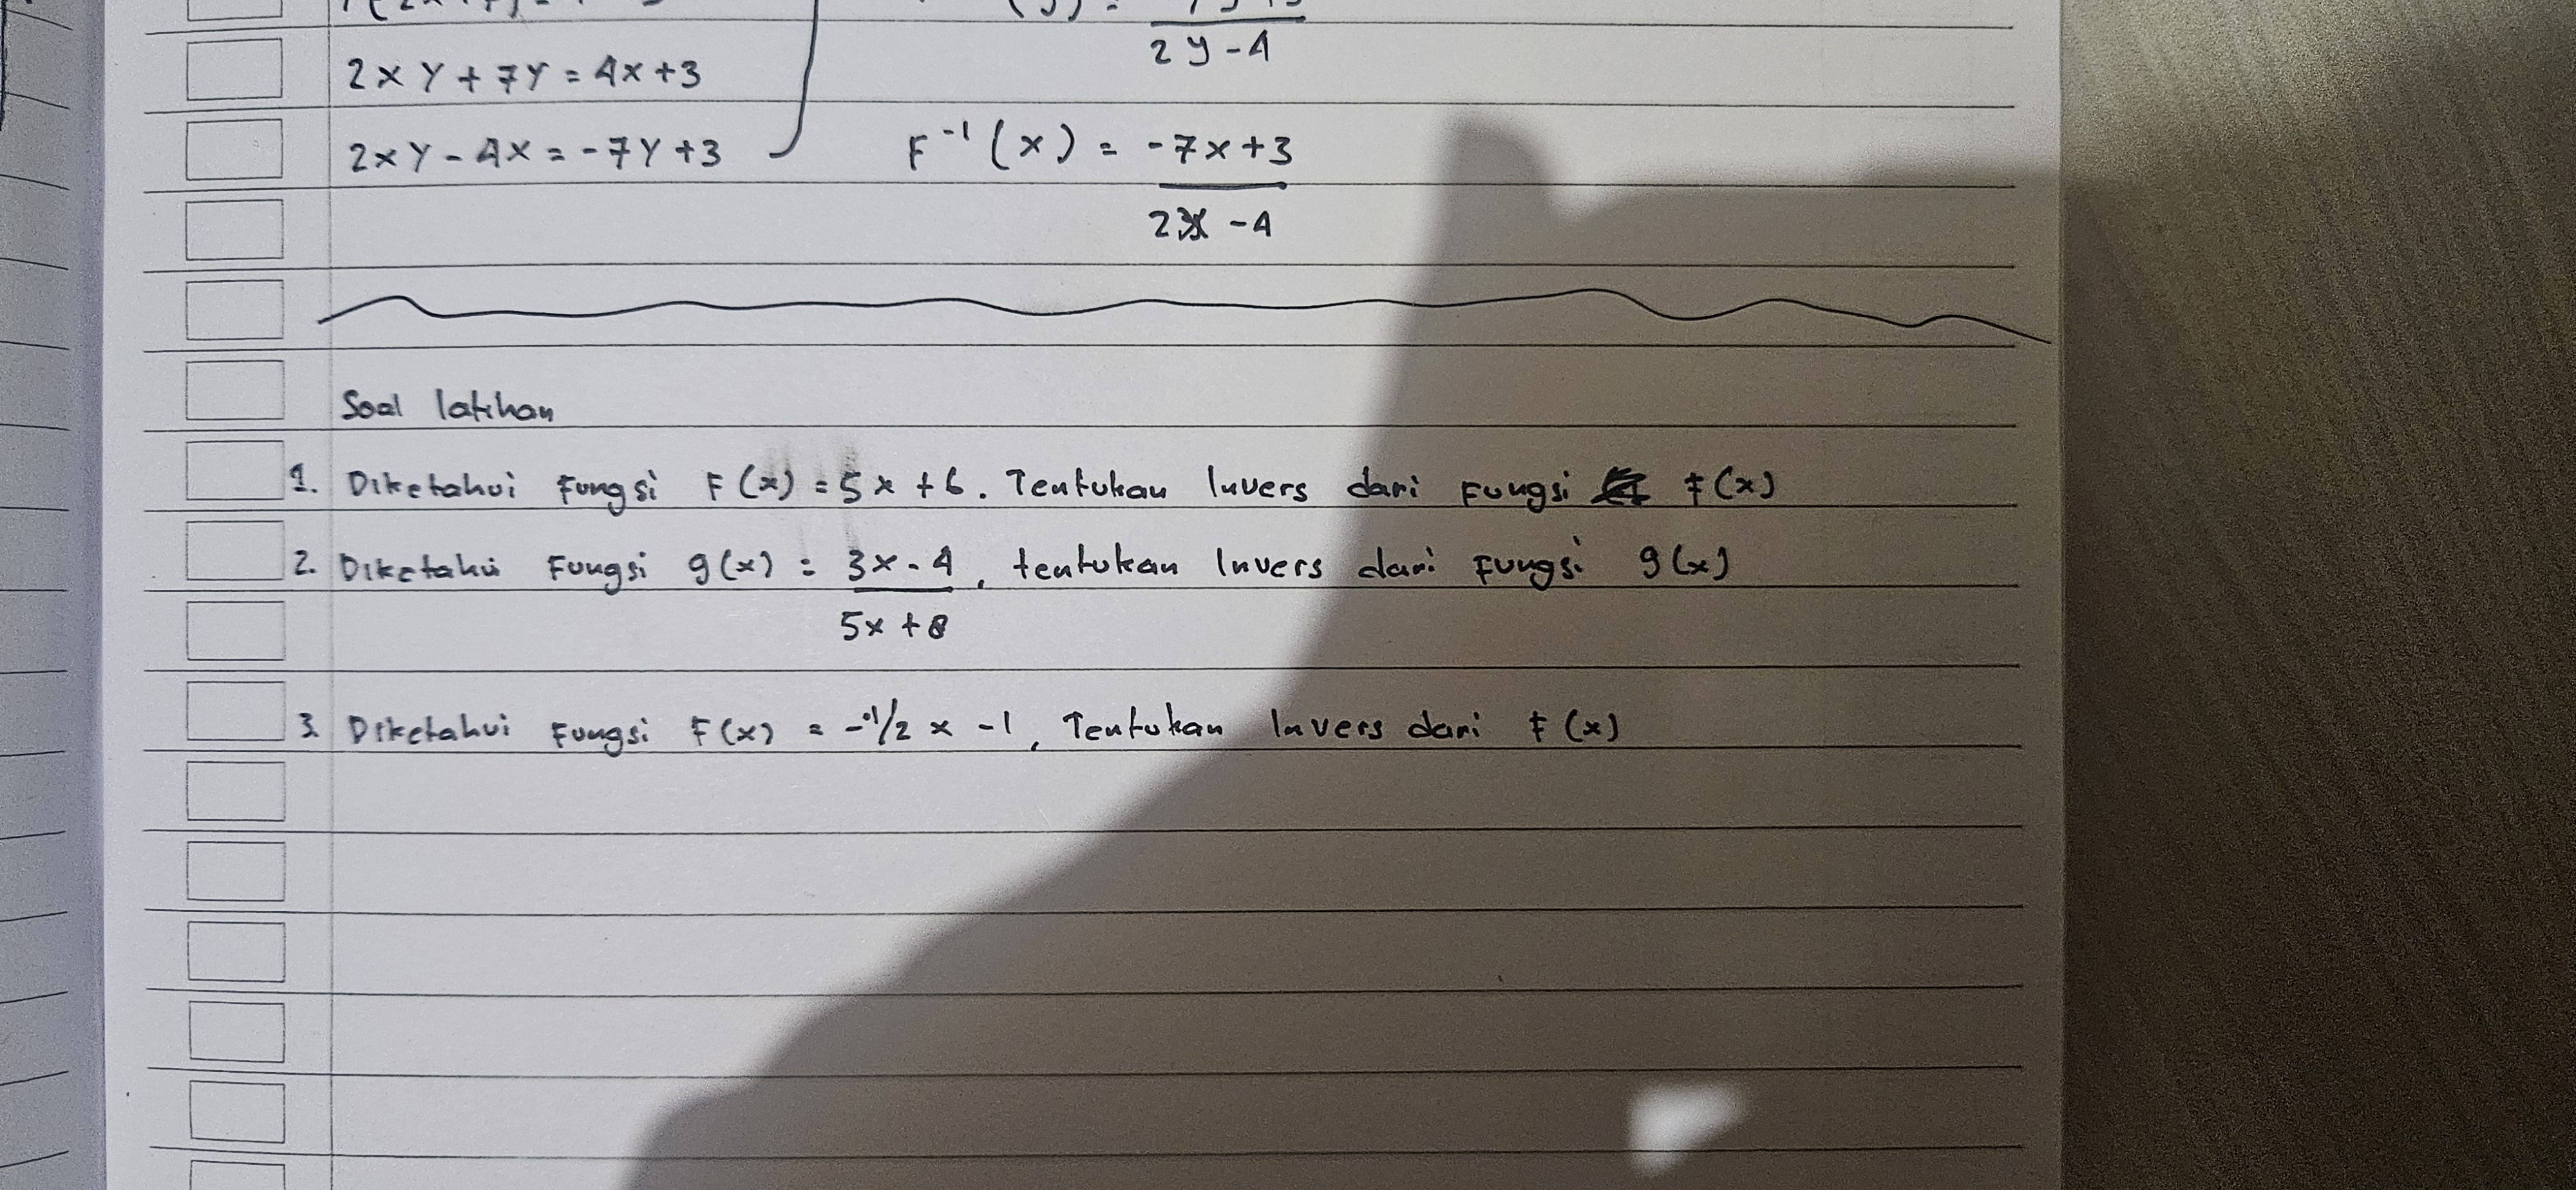 2y - 4
2xy + 7y = 4x + 3
2xy - 4x = -7y + 3
F⁻¹(x) = -7x + 3
2x - 4
Soal latihan
1. Diketahui fungsi F(x) = 5x + 6. Tentukan Invers dari Fungsi f(x)
2. Diketahui Fungsi g(x) = 3x - 4, tentukan Invers dari Fungsi g(x)
5x + 8
3. Diketahui Fungsi F(x) = -1/2 x - 1, Tentukan Invers dari f(x)